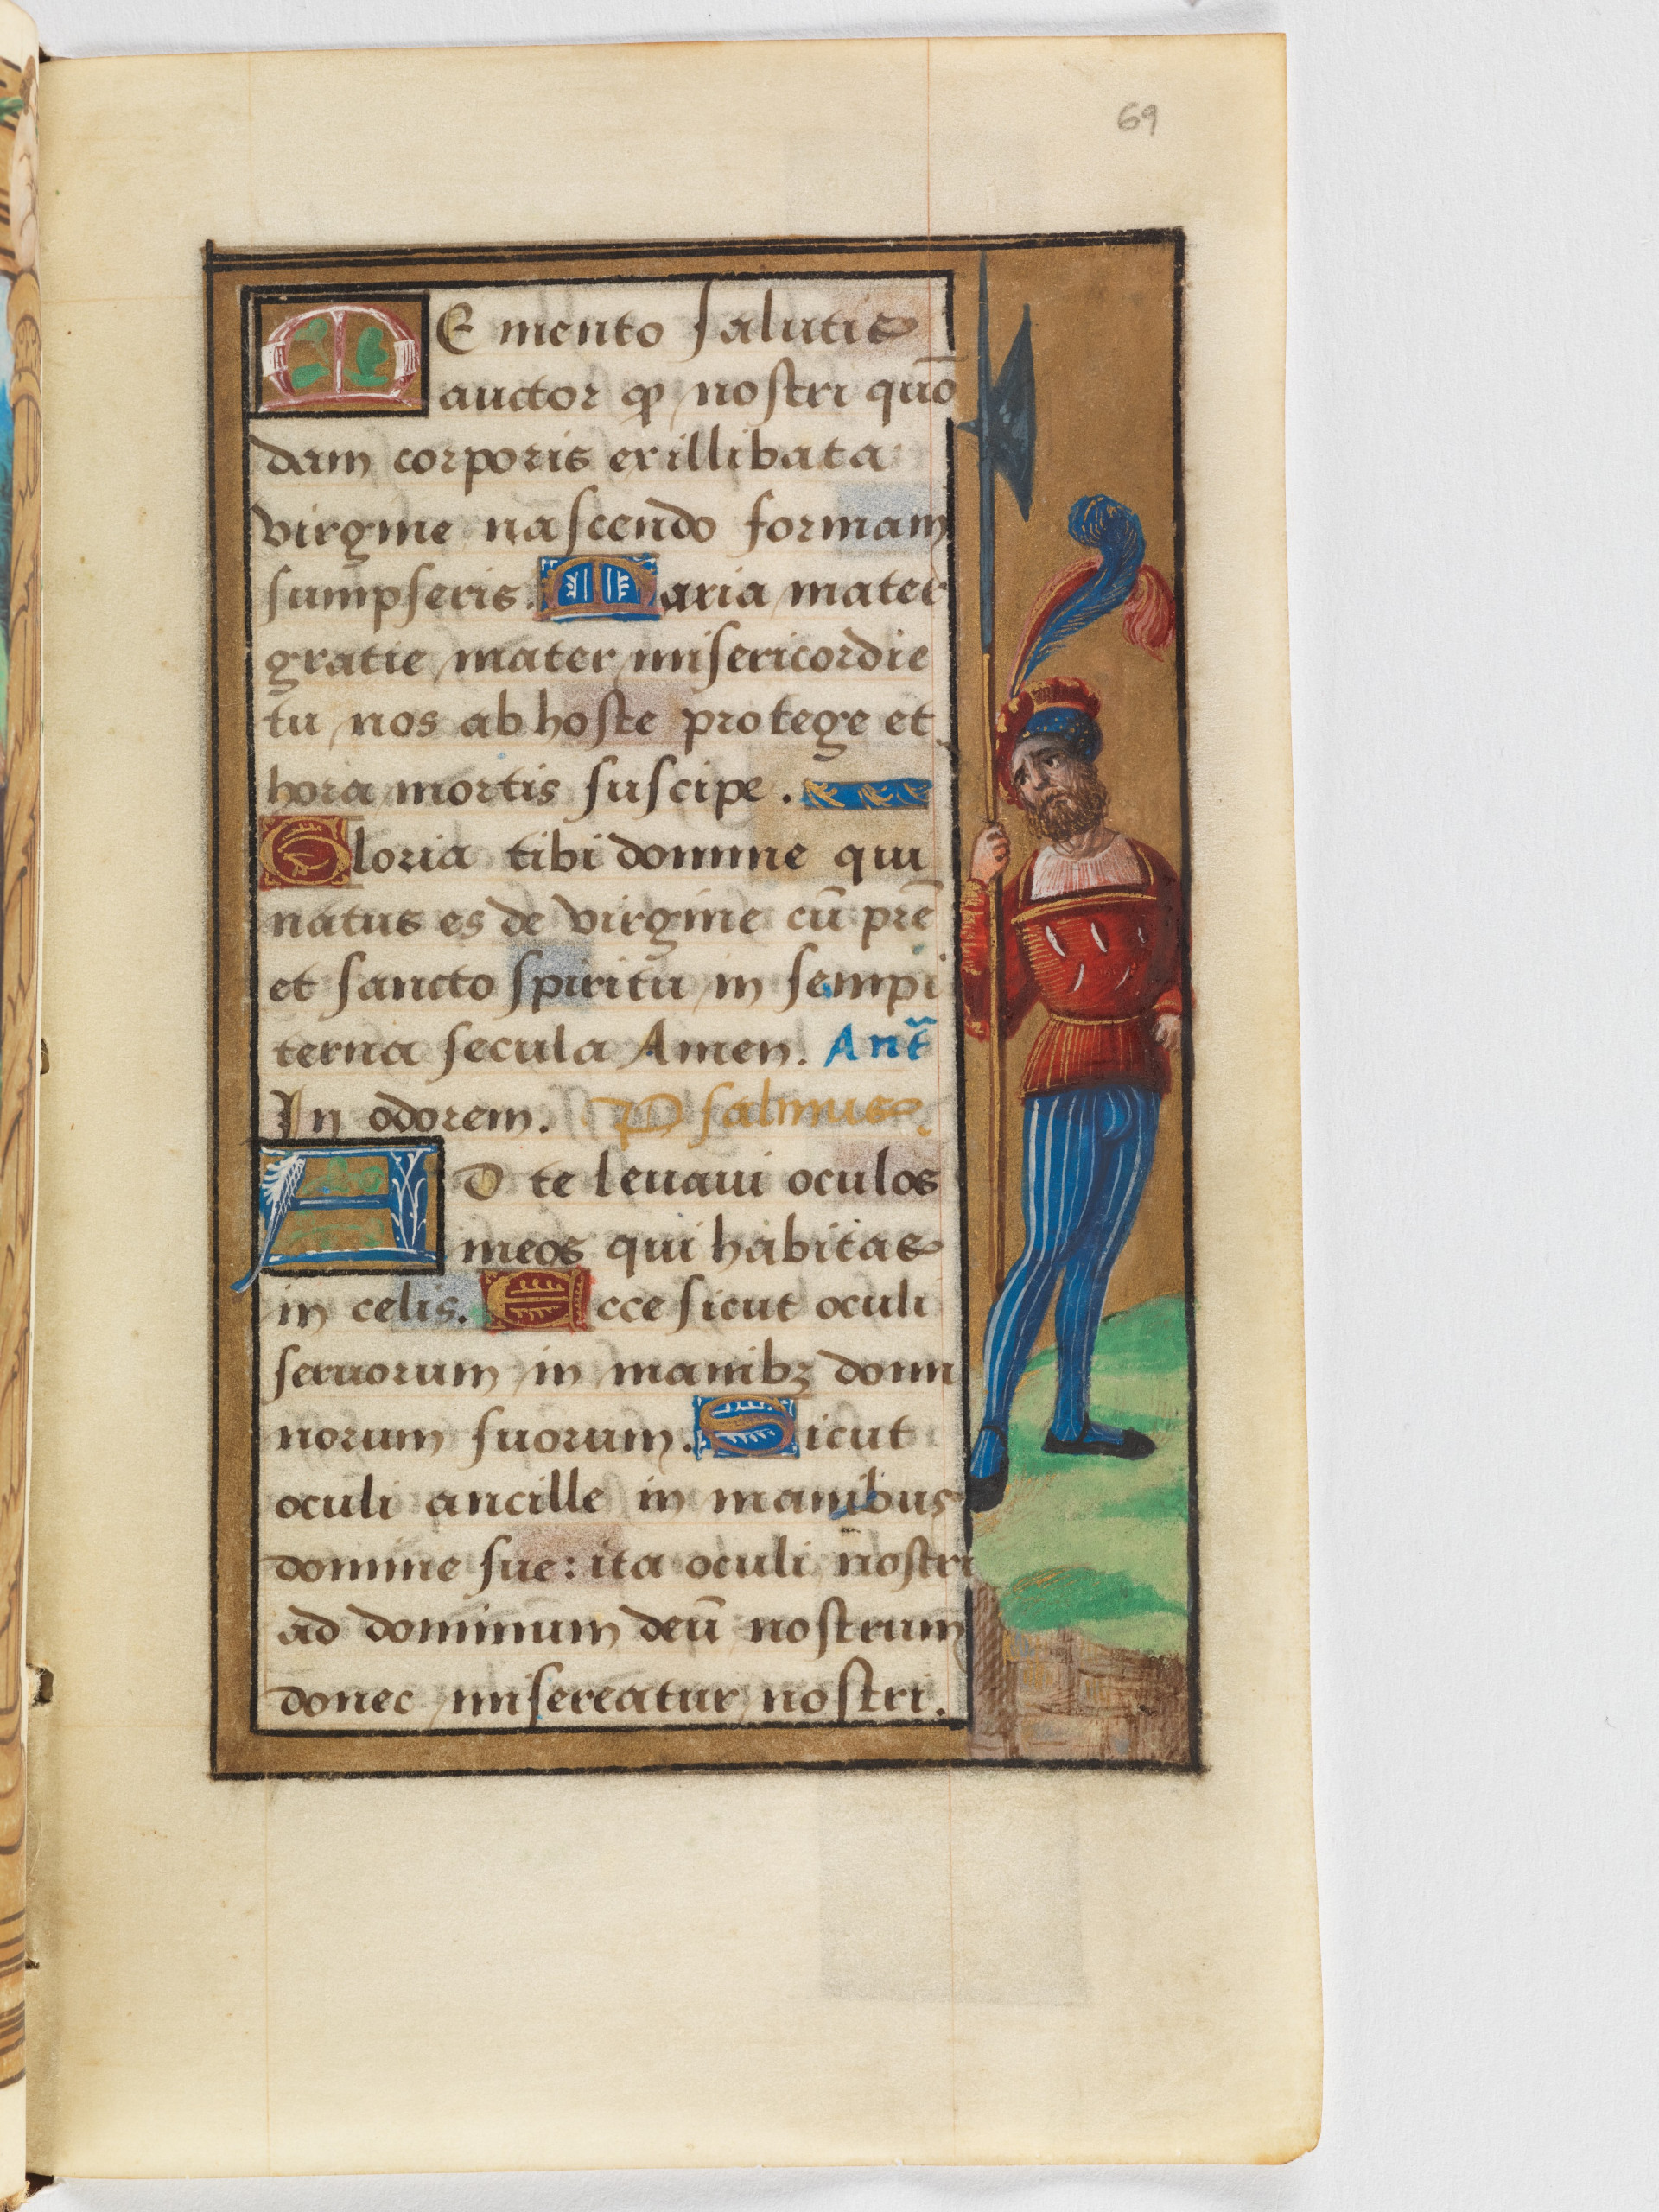 69
MEmento salutis
auctor ꝙ nostri quō
dam corporis ex illibata
virgine nascendo formam
sumpseris. Maria mater
gratie mater misericordie
tu nos ab hoste protege et
hora mortis suscipe.
Gloria tibi domine qui
natus es de virgine cū prē
et sancto spiritu in sempi
terna secula Amen. Ant̄
In odorem. Psalmus.
AD te leuaui oculos
meos qui habitas
in celis. Ecce sicut oculi
seruorum in manibꝫ domi
norum suorum. Sicut
oculi ancille in manibus
domine sue: ita oculi nostri
ad dominum deū nostrum
donec misereatur nostri.